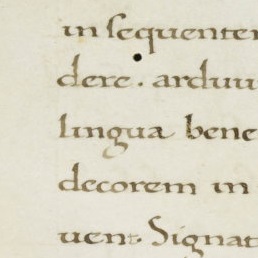 in sequenten
dere. arduu
lingua bene
decorem in
uent. Signat